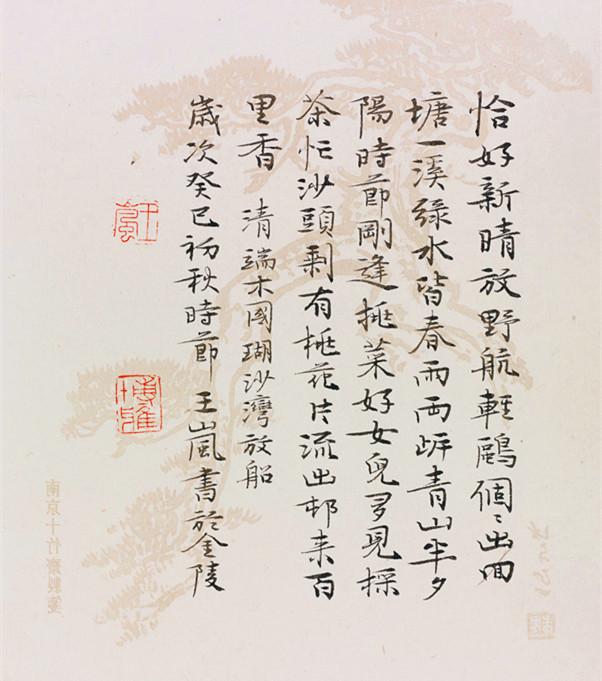 恰好新晴放野航輕鷗個〻出回
塘一溪綠水皆春雨兩岸青山半夕
陽時節剛逢挑菜好女兒多見採
茶忙沙頭剩有桃花片流出邨來百
里香 清端木國瑚沙灣放船
歲次癸巳初秋時節王嵐書於金陵
王嵐
南京十竹齋製箋